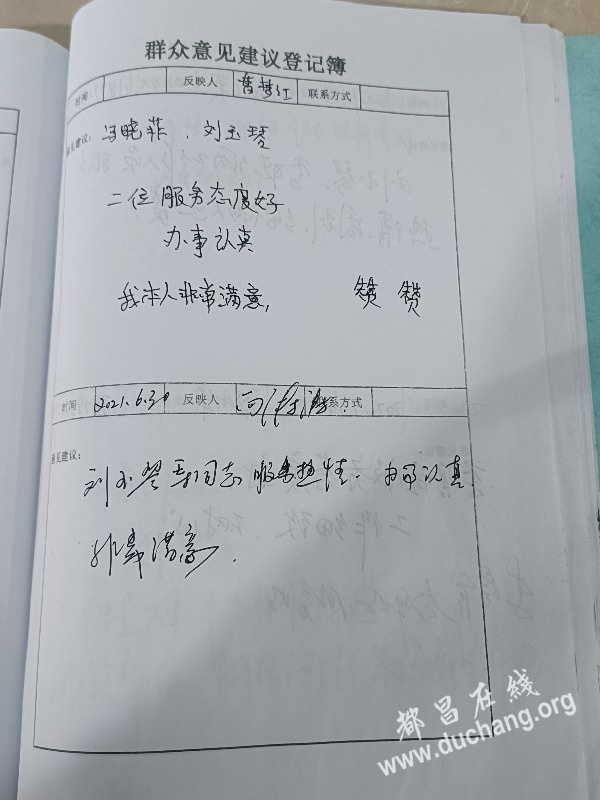 群众意见建议登记簿
时间 反映人 联系方式
意见建议：冯晓菲、刘玉琴
二位服务态度好
办事认真
我本人非常满意， 赞 赞
时间 2021.6.30 反映人 联系方式
意见建议：
刘玉琴同志服务热情．办事认真
非常满意．
都昌在线
www.duchang.org